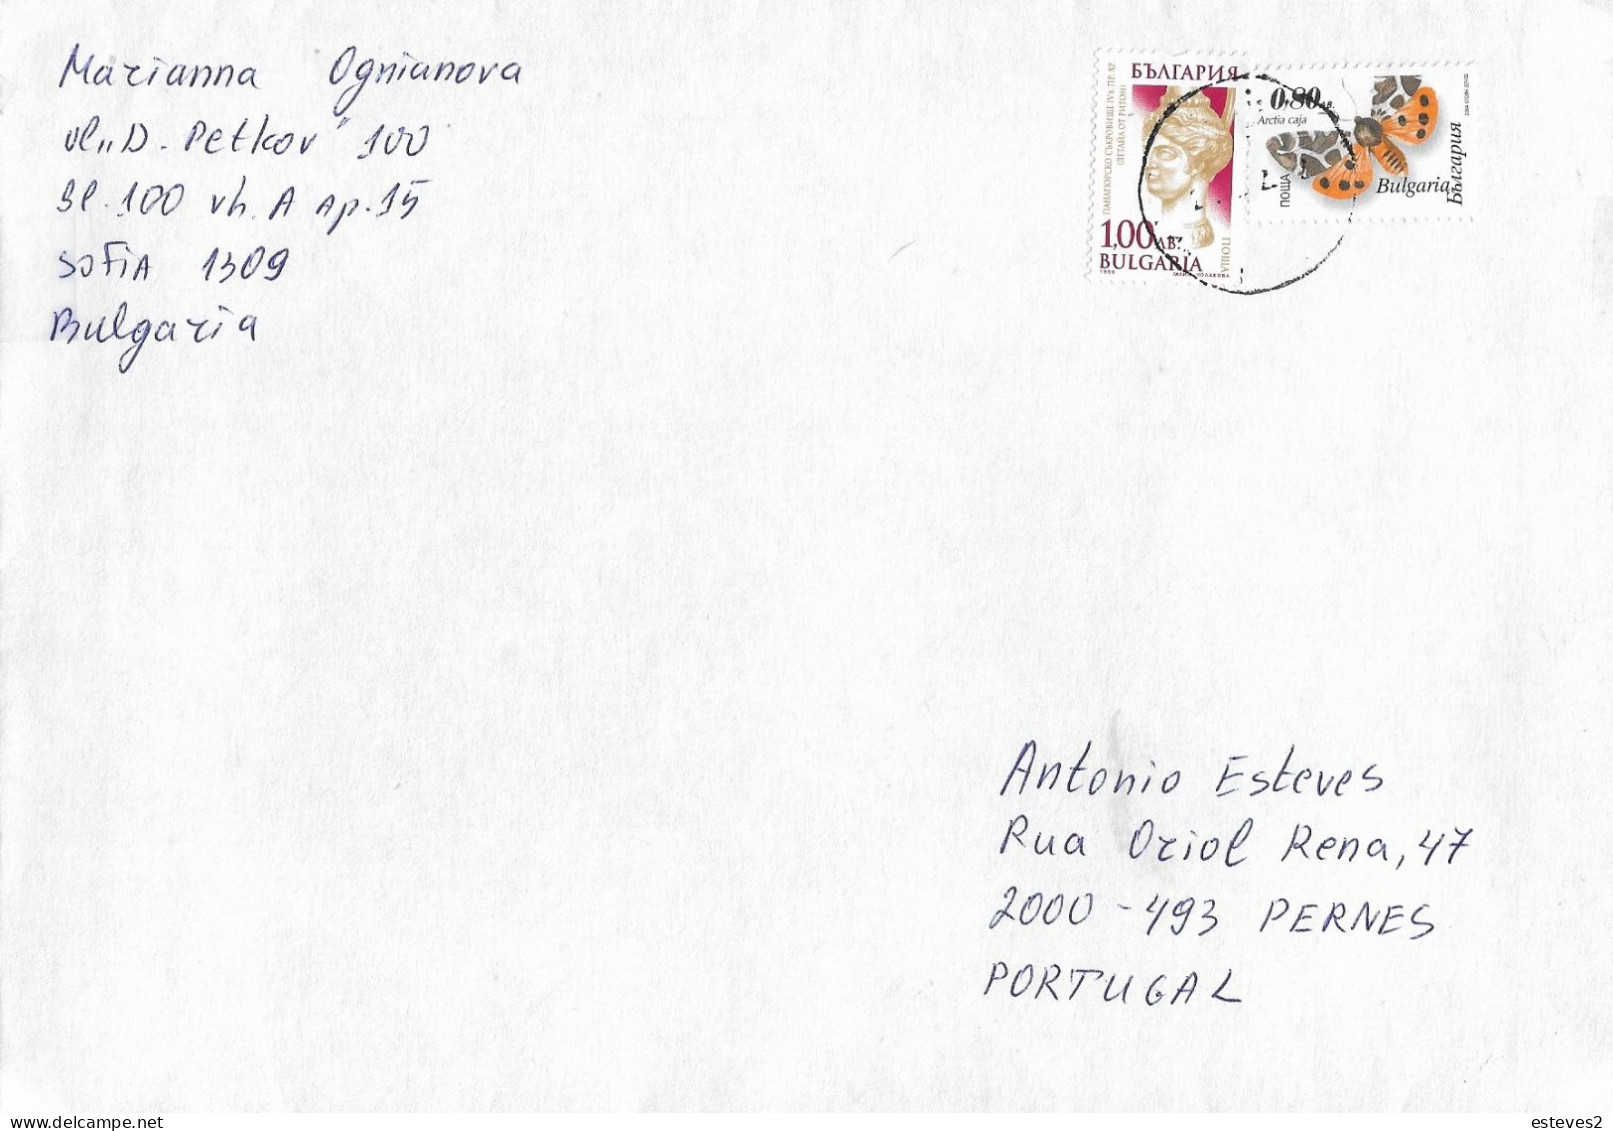 Marianna Ognianova
ul „D. Petkov" 100
Bl. 100 vh. A ap. 15
Sofia 1309
Bulgaria
БЪЛГАРИЯ
ПАНАГЮРСКО СЪКРОВИЩЕ IV в. ПР. ХР.
(ДЕТАЙЛ ОТ РИТОН)
1,00 ЛВ.
ПОЩА
BULGARIA
1999
0,80 ЛВ.
Arctia caja
ПОЩА
Bulgaria
България
Antonio Esteves
Rua Oriol Rena, 47
2000 - 493 PERNES
PORTUGAL
esteves2